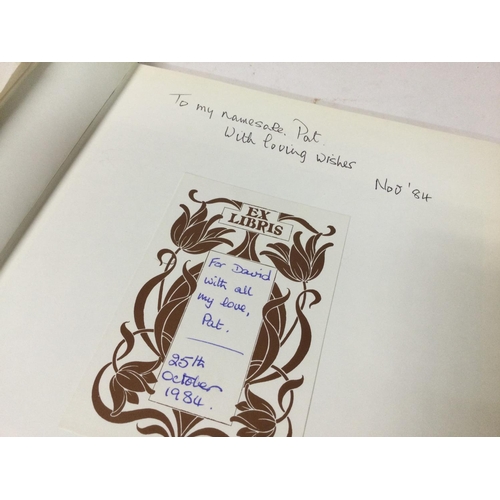 To my namesake. Pat.
With loving wishes
Nov '84
EX
LIBRIS
For David
with all
my love,
Pat.
25th
October
1984.